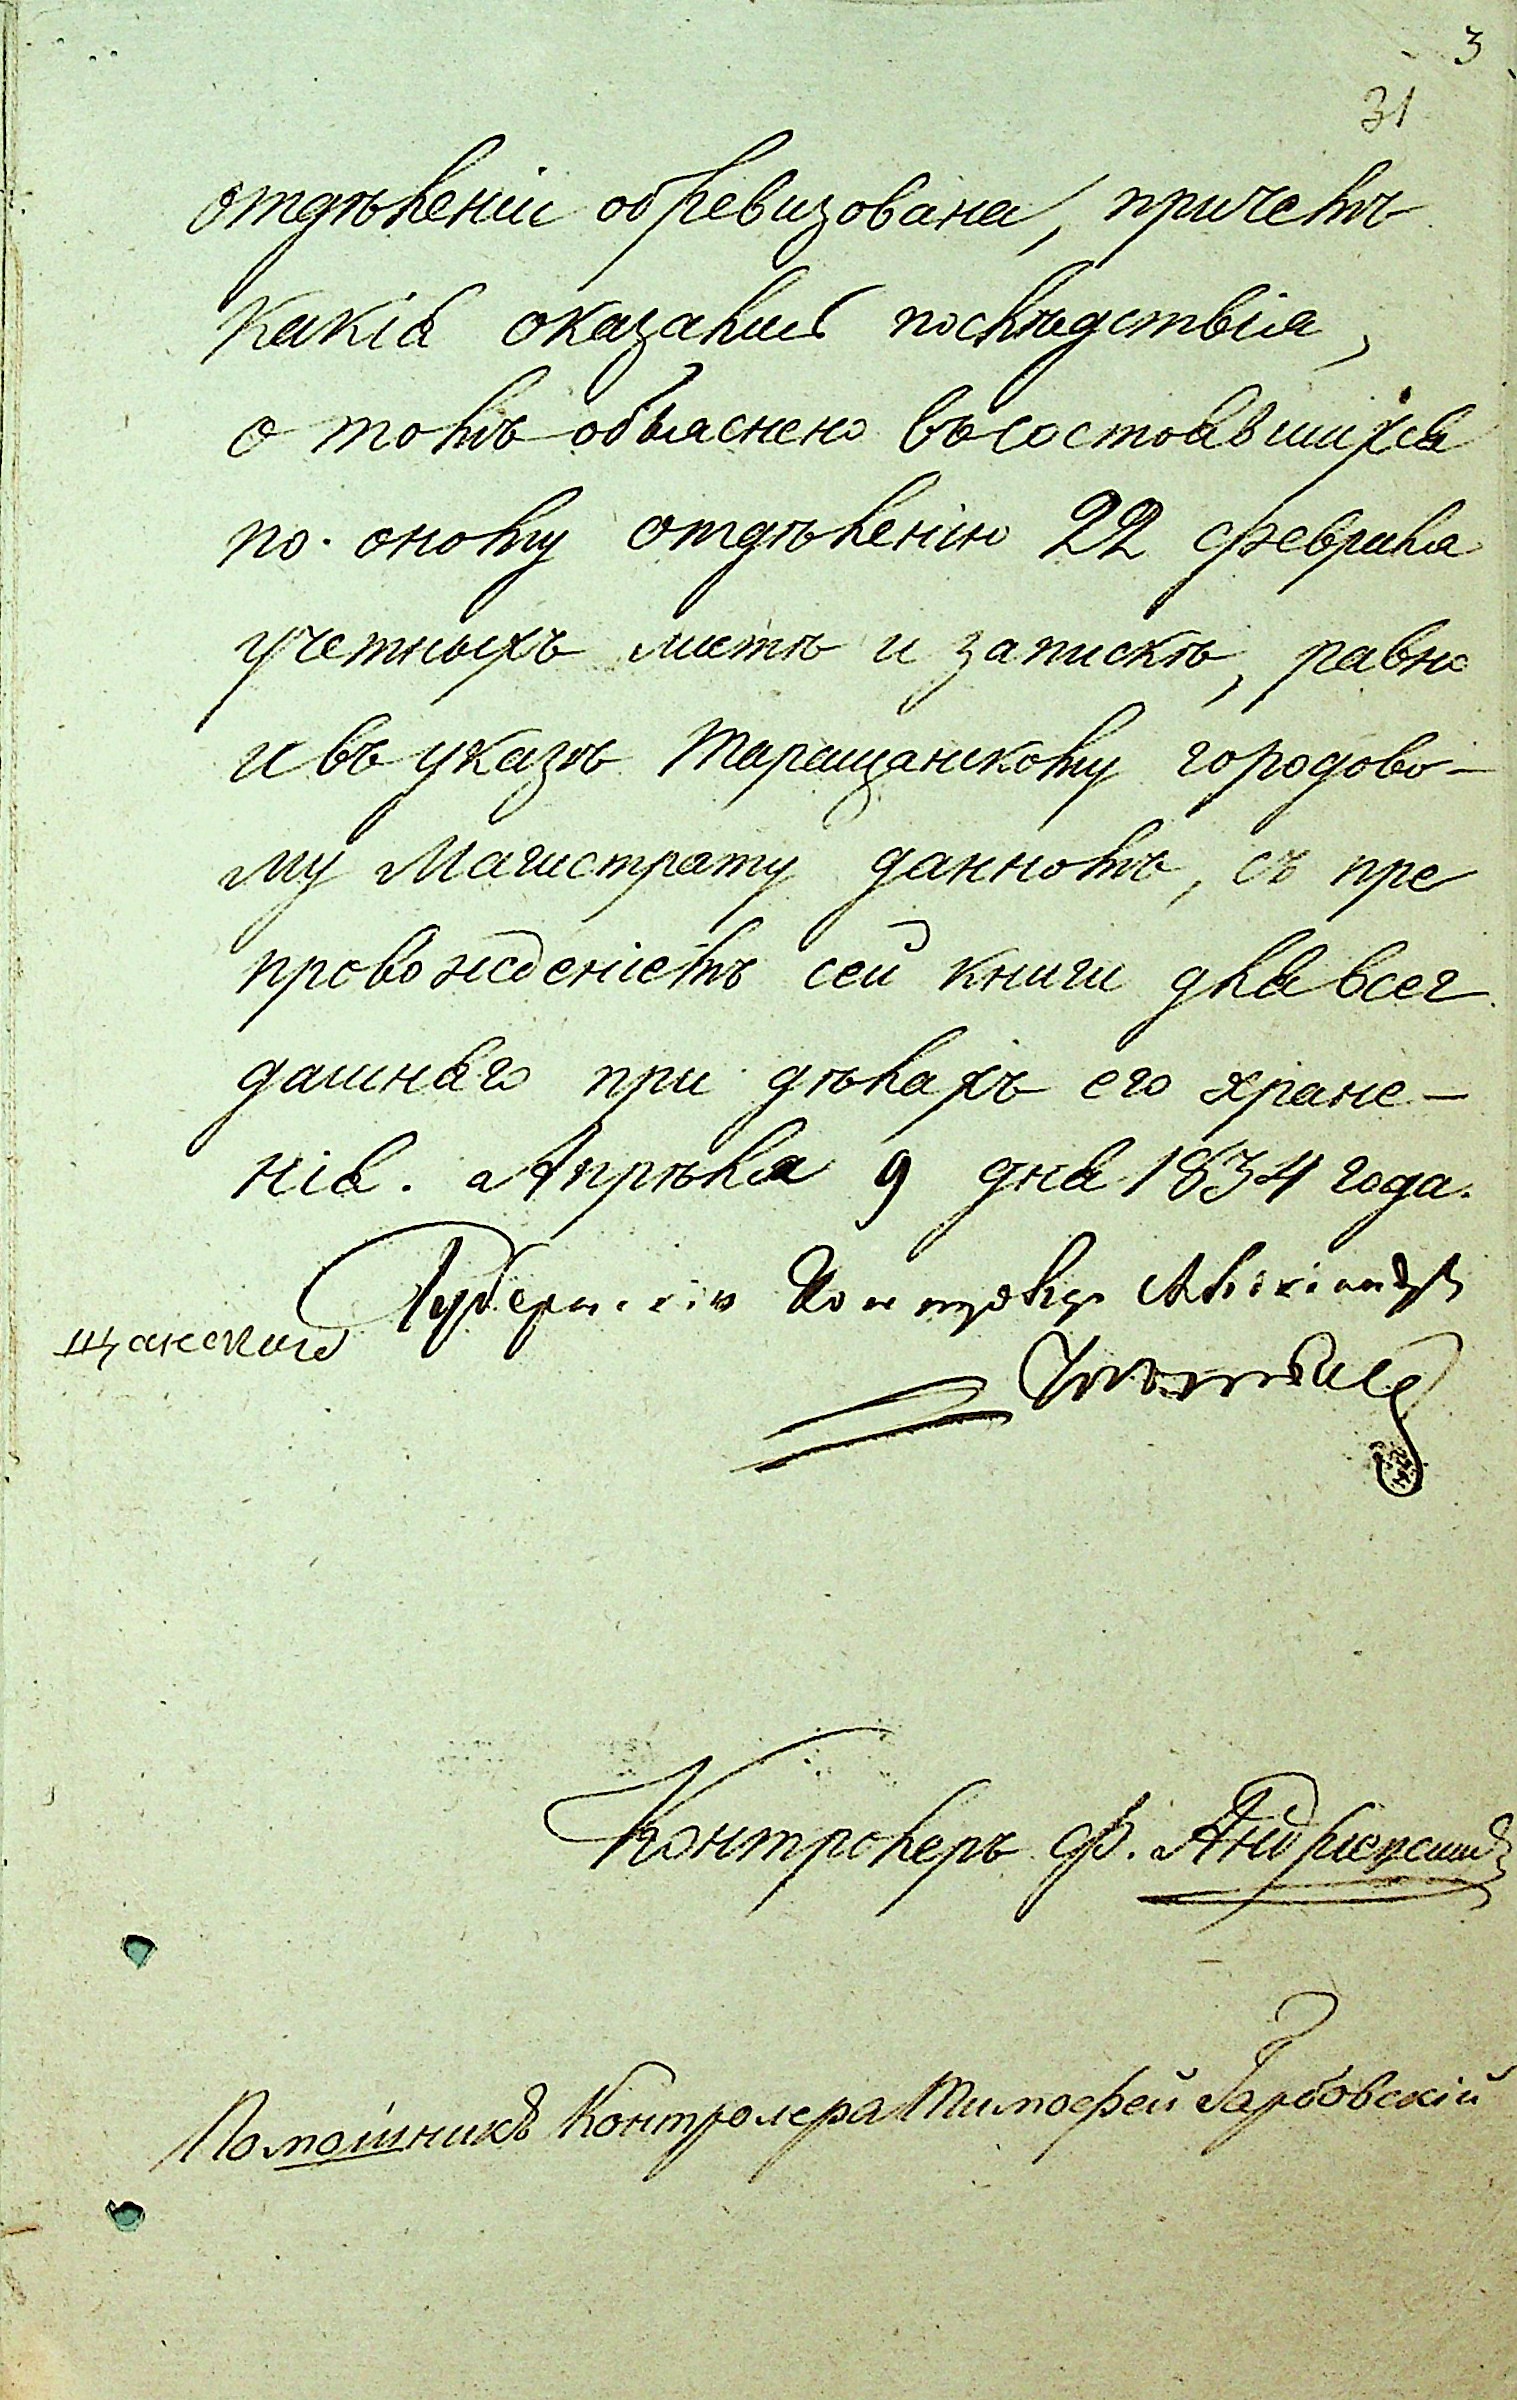 3
31
отдѣленіи обревизована, причемъ
какія оказались послѣдствія,
о томъ объяснено въ состоявшихся
по оному отдѣленію 22 февраля
учетныхъ листѣ и запискѣ, равно
и въ указѣ Таращанскому городово-
му Магистрату данномъ, съ пре
провожденіемъ сей книги для всег
дашняго при дѣлахъ его хране-
нія. Апрѣля 9 дня 1834 года.
Губернскій Контролеръ
щанскаго
Контролеръ Ф. Андріевскій
Помошникъ Контролера Тимофей Гарбовскій